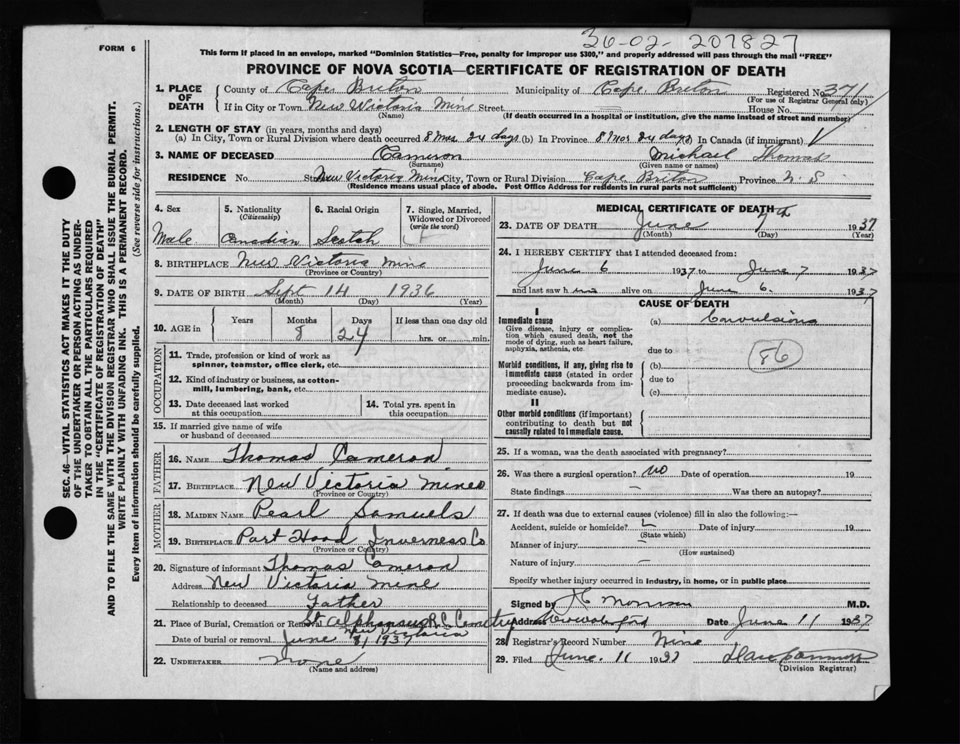 36-02-207827
FORM 6
This form if placed in an envelope, marked "Dominion Statistics—Free, penalty for improper use $300," and properly addressed will pass through the mail "FREE"
PROVINCE OF NOVA SCOTIA—CERTIFICATE OF REGISTRATION OF DEATH
SEC. 46—VITAL STATISTICS ACT MAKES IT THE DUTY
OF THE UNDERTAKER OR PERSON ACTING AS UNDER-
TAKER TO OBTAIN ALL THE PARTICULARS REQUIRED
IN THE "CERTIFICATE OF REGISTRATION OF DEATH"
AND TO FILE THE SAME WITH THE DIVISION REGISTRAR WHO SHALL ISSUE THE BURIAL PERMIT.
WRITE PLAINLY WITH UNFADING INK. THIS IS A PERMANENT RECORD.
Every item of information should be carefully supplied. (See reverse side for instructions.)
1. PLACE OF DEATH
County of Cape Breton Municipality of Cape Breton Registered No. 371
(For use of Registrar General only)
If in City or Town New Victoria Mine Street House No.
(Name) (If death occurred in a hospital or institution, give the name instead of street and number)
2. LENGTH OF STAY (in years, months and days)
(a) In City, Town or Rural Division where death occurred 8 Mos. 24 days (b) In Province 8 Mos 24 days (c) In Canada (if immigrant)
3. NAME OF DECEASED Cameron Michael Thomas
(Surname) (Given name or names)
RESIDENCE No. St. New Victoria Mine City, Town or Rural Division Cape Breton Province N.S
(Residence means usual place of abode. Post Office Address for residents in rural parts not sufficient)
4. Sex Male
5. Nationality (Citizenship) Canadian
6. Racial Origin Scotch
7. Single, Married, Widowed or Divorced (write the word)
8. BIRTHPLACE New Victoria Mine
(Province or Country)
9. DATE OF BIRTH Sept 14 1936
(Month) (Day) (Year)
10. AGE in Years Months 8 Days 24 If less than one day old hrs. or min.
OCCUPATION
11. Trade, profession or kind of work as spinner, teamster, office clerk, etc.
12. Kind of industry or business, as cotton-mill, lumbering, bank, etc.
13. Date deceased last worked at this occupation
14. Total yrs. spent in this occupation
15. If married give name of wife or husband of deceased
FATHER
16. NAME Thomas Cameron
17. BIRTHPLACE New Victoria Mines
(Province or Country)
MOTHER
18. MAIDEN NAME Pearl Samuels
19. BIRTHPLACE Port Hood Inverness Co
(Province or Country)
20. Signature of informant Thomas Cameron
Address New Victoria Mine
Relationship to deceased Father
21. Place of Burial, Cremation or Removal St Alphonsus R.C. Cemetry New Victoria
Date of burial or removal June 8, 1937
22. UNDERTAKER none
(Name and address)
MEDICAL CERTIFICATE OF DEATH
23. DATE OF DEATH June 7th 1937
(Month) (Day) (Year)
24. I HEREBY CERTIFY that I attended deceased from:
June 6 1937 to June 7 1937
and last saw him alive on June 6. 1937
CAUSE OF DEATH
I
Immediate cause (a) Convulsions
Give disease, injury or complication which caused death, not the mode of dying, such as heart failure, asphyxia, asthenia, etc.
due to
86
Morbid conditions, if any, giving rise to immediate cause (stated in order proceeding backwards from immediate cause).
(b)
due to
(c)
II
Other morbid conditions (if important) contributing to death but not causally related to immediate cause.
25. If a woman, was the death associated with pregnancy?
26. Was there a surgical operation? no Date of operation 19
State findings — Was there an autopsy?
27. If death was due to external causes (violence) fill in also the following:—
Accident, suicide or homicide? Date of injury 19
(State which)
Manner of injury —
(How sustained)
Nature of injury —
Specify whether injury occurred in industry, in home, or in public place
Signed by M.D.
Address Date June 11 1937
28. Registrar's Record Number Nine
29. Filed June. 11 1937
(Division Registrar)